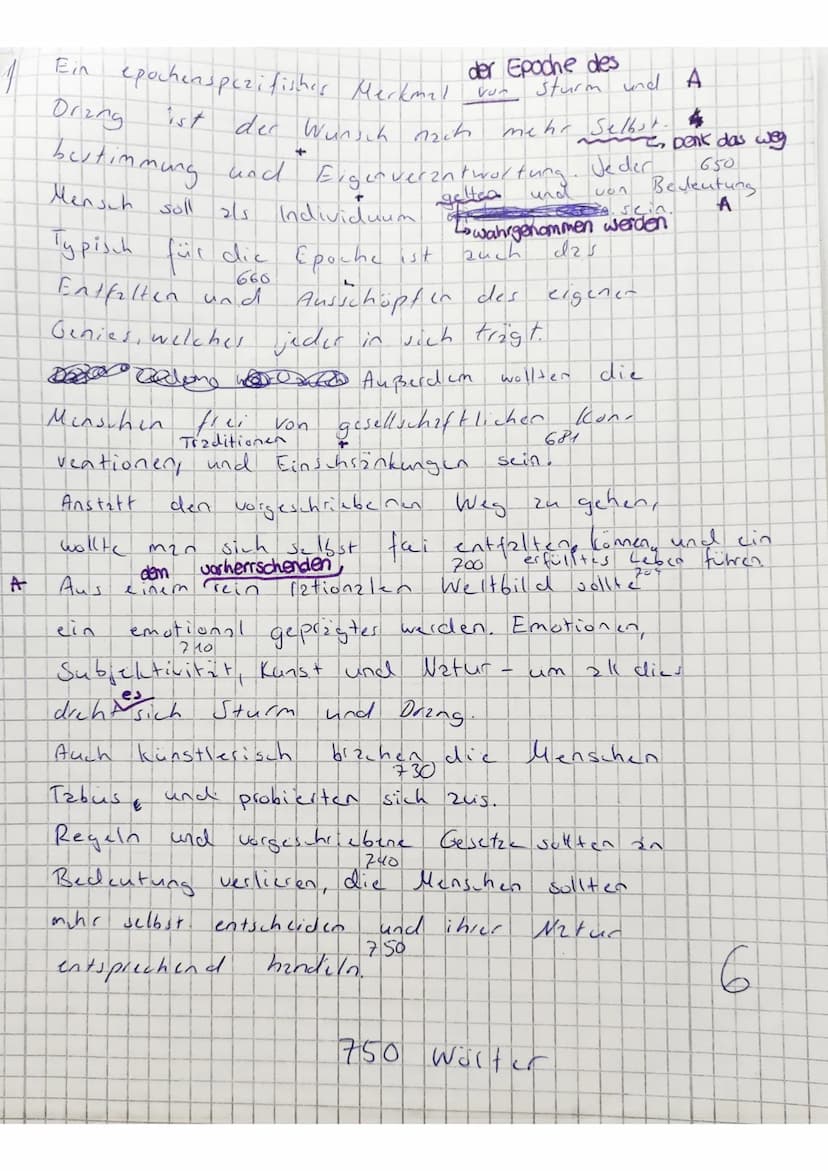 der Epoche des
1 Ein epochenspezifisches Merkmal von Sturm und A
Drang ist der Wunsch nach mehr Selbst-
↳ Denk das weg
bestimmung und Eigenverantwortung. Jeder 650
Mensch soll als Individuum gelten und von Bedeutung sein. A
↳ wahrgenommen werden
Typisch für die Epoche ist auch das
660
Entfalten und Ausschöpfen des eigenen
Genies, welches jeder in sich trägt.
Außerdem wollten die
Menschen frei von gesellschaftlichen Kon-
Traditionen 681
ventionen, und Einschränkungen sein.
Anstatt den vorgeschriebenen Weg zu gehen,
wollte man sich selbst frei entfalten können, und ein
700 erfülltes Leben führen
dem vorherrschenden 704
A Aus einem rein rationalen Weltbild sollte
ein emotional geprägtes werden. Emotionen,
710
Subjektivität, Kunst und Natur - um all dies
es
dreht sich Sturm und Drang.
Auch künstlerisch brachen die Menschen
730
Tabus, und probierten sich aus.
Regeln und vorgeschriebene Gesetze sollten an
740
Bedeutung verlieren, die Menschen sollten
mehr selbst entscheiden und ihrer Natur
750
entsprechend handeln.
6
750 Wörter